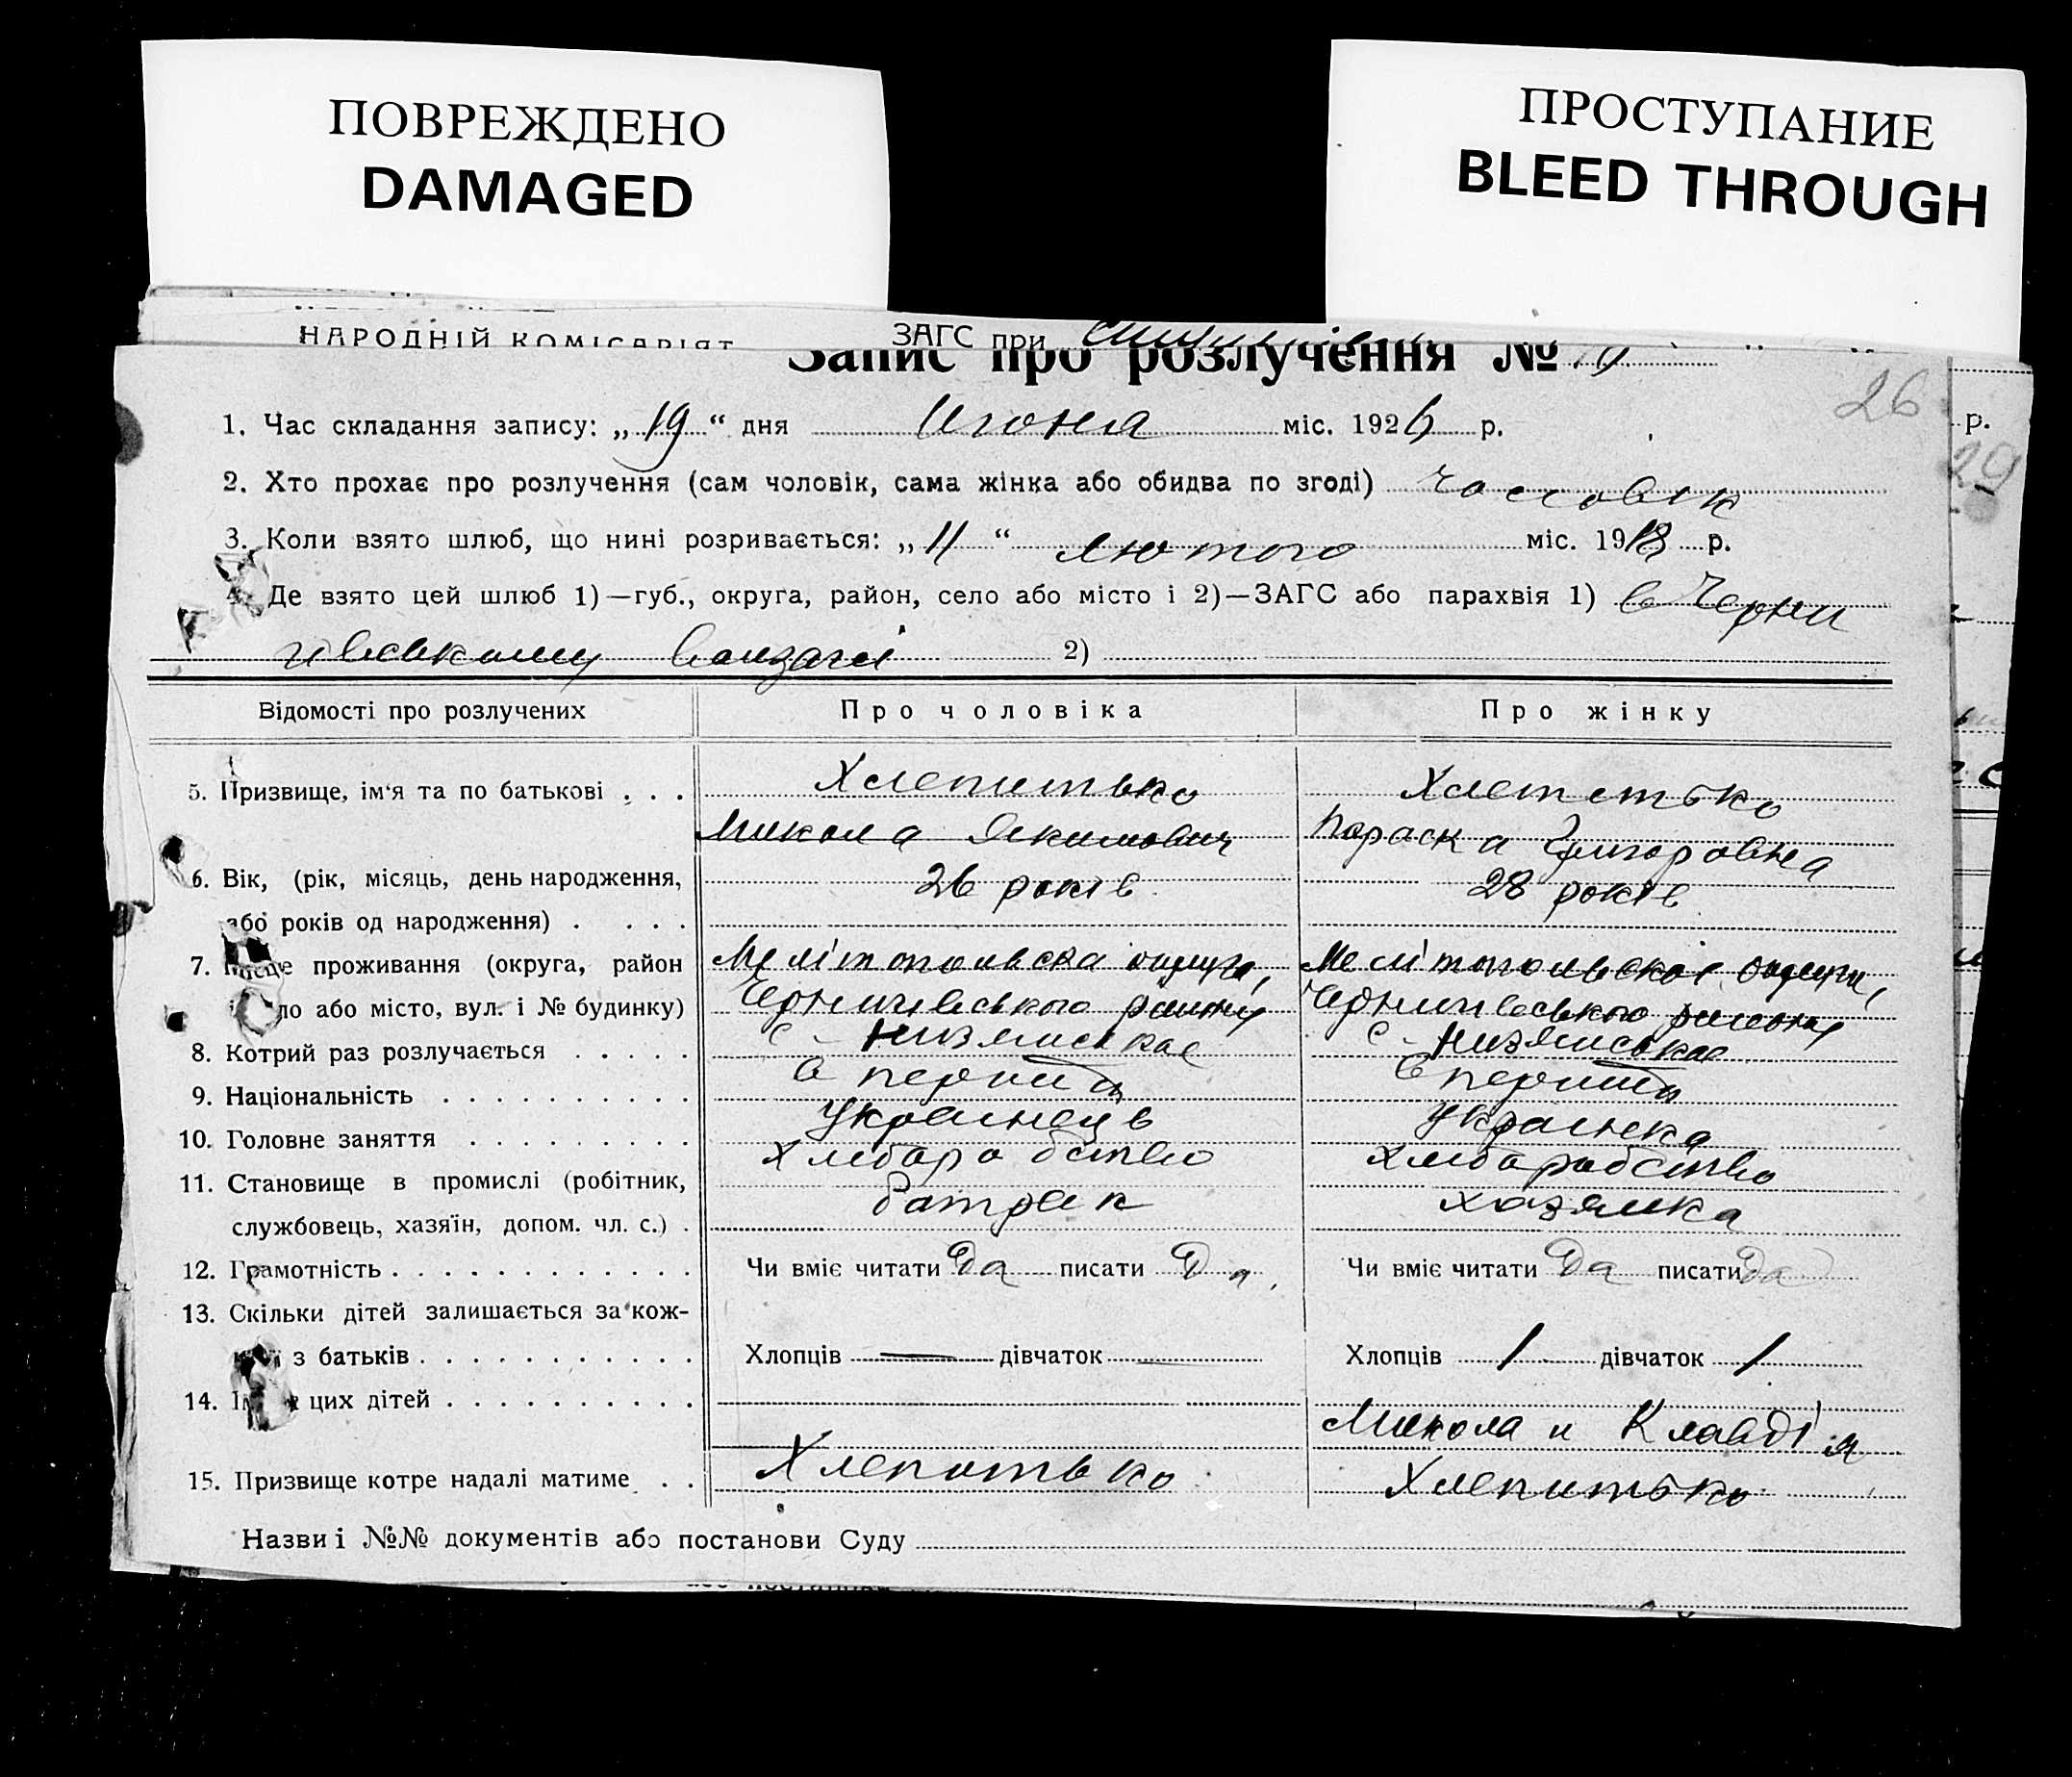 ПОВРЕЖДЕНО
DAMAGED
ПРОСТУПАНИЕ
BLEED THROUGH
НАРОДНІЙ КОМІСАРІЯТ
ЗАГС при
Запис про розлучення №
26
1. Час складання запису: „19“ дня Июня міс. 1926 р.
р.
29
2. Хто прохає про розлучення (сам чоловік, сама жінка або обидва по згоді) чоловік
3. Коли взято шлюб, що нині розривається: „11“ лютого міс. 1918 р.
4. Де взято цей шлюб 1)—губ., округа, район, село або місто і 2)—ЗАГС або парахвія 1) в Черни
гівському 2)
Відомості про розлучених
Про чоловіка
Про жінку
5. Призвище, ім‘я та по батькові . . .
Хлепитько
Микола Якимович
Хлепитько
Параска Григоровна
6. Вік, (рік, місяць, день народження,
або років од народження) . . . .
26 років
28 років
7. Місце проживання (округа, район
ло або місто, вул. і № будинку)
Мелітопольска округа,
Чернигівського району
с - Низянської
Мелітопольскої округи,
Чернигівського району
с - Низянської
8. Котрий раз розлучається . . . . .
в перший
в перший
9. Національність . . . . . . . . . .
Українець
Українка
10. Головне заняття . . . . . . . . .
Хліборобство
Хліборобство
11. Становище в промислі (робітник,
службовець, хазяїн, допом. чл. с.) .
батрак
хозяйка
12. Грамотність . . . . . . . . . . . .
Чи вміє читати Да писати Да.
Чи вміє читати Да писати Да
13. Скільки дітей залишається за кож-
з батьків . . . . . . . . . . .
Хлопців — дівчаток —
Хлопців 1 дівчаток 1
14. цих дітей . . . . . . . . . .
Микола и Клавдія
15. Призвище котре надалі матиме . .
Хлепитько
Хлепитько
Назви і №№ документів або постанови Суду